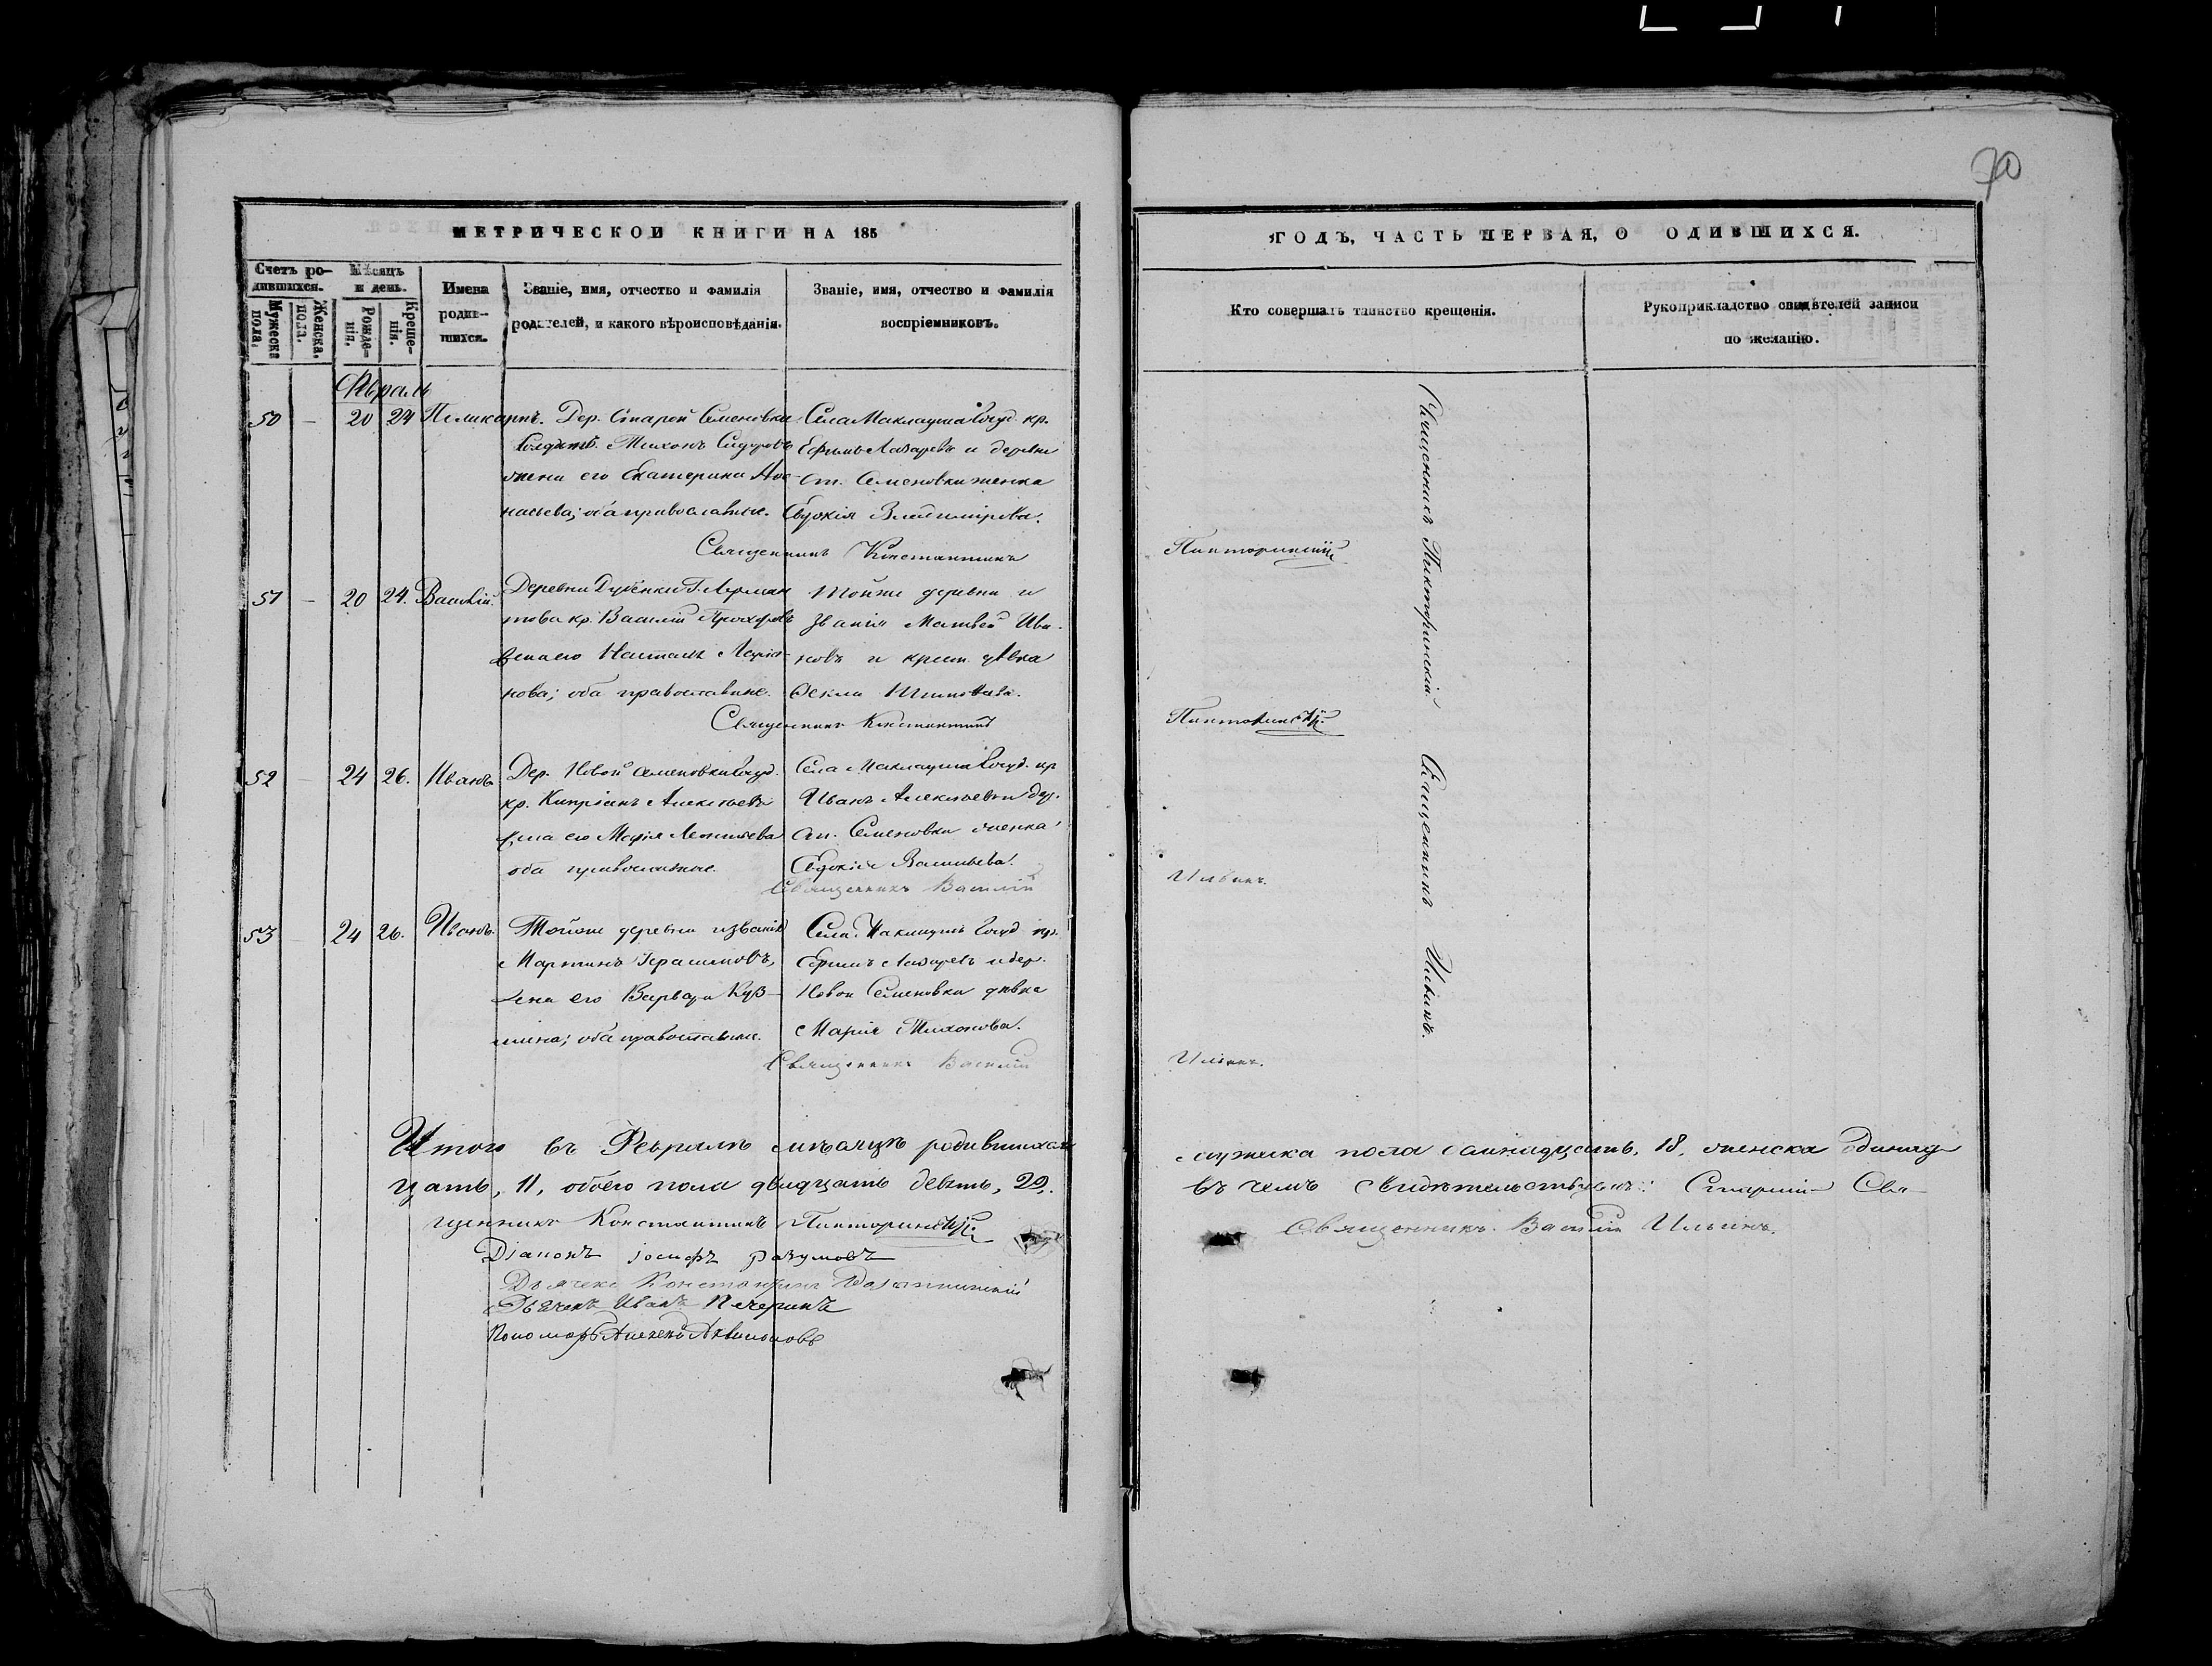 70
МЕТРИЧЕСКОЙ КНИГИ НА 185
ГОДЪ, ЧАСТЬ ПЕРВАЯ, О ОДИВШИХСЯ.
Счетъ ро-
дившихся.
Мужеска пола.
Женска. пола.
Мѣсяцъ
и день.
Рожде-
нія.
Креще-
нія.
Имена
родив-
шихся.
Званіе, имя, отчество и фамилія
родителей, и какого вѣроисповѣданія.
Званіе, имя, отчество и фамилія
воспріемниковъ.
Кто совершалъ таинство крещенія.
Рукоприкладство свидѣтелей записи
по желанію.
Февраль
50 – 20 24 Поликарпъ. Дер. Старой Семеновки
Солдатъ. Тихонъ Сидоровъ
жена его Екатерина Аѳо-
насьева; оба православные.
Села Маклауша Госуд. кр.
Ефимъ Лазаревъ и деревни
ст. Семеновки женка
Евдокія Владимірова.
Священникъ Константинъ
Пикторинскій
51 – 20 24. Василій.
Деревни Дубенки Г. Лерман
това кр. Василій Прохоровъ
жена его Наталья Ларіо-
нова; оба православные.
Тойже деревни и
званія Матвей Ива-
новъ и крест. дѣвка
Ѳекла
Священникъ Константинъ
Пикторинскій.
52 – 24 26. Иванъ
Дер. Новой Семеновки Госуд.
кр. Кипріанъ Алексѣевъ
жена его Марія Леонтьева
оба православные.
Села Маклауша Госуд. кр
Иванъ Алексѣевъ и дер.
ст. Семеновки женка
Евдокія Васильева.
Священникъ Василій
Ильинъ.
53 – 24 26. Иванъ.
Тойже деревни и званія
Мартинъ Герасимовъ,
жена его Варвара Кузь-
мина; оба православные.
Села Маклауша Госуд. кр.
Ефимъ Лазаревъ и дер.
Новой Семеновки дѣвка
Марія Тихонова.
Священникъ Василій
Ильинъ.
Священникъ Пикторинскій.
Священникъ Ильинъ.
Итого въ Февралѣ мѣсяцѣ родившихся
мужеска пола 18, женска одинад
цать, 11, обоего пола двадцать девять, 29.
въ чемъ свидѣтельствуемъ: Старшій Свя-
щенникъ Константинъ Пикторинскій.
Священникъ Василій Ильинъ.
Діаконъ Іосифъ Разумовъ
Дьячекъ Константинъ
Дьячекъ Иванъ Печеринъ
Пономарь Алексѣй Аквилоновъ